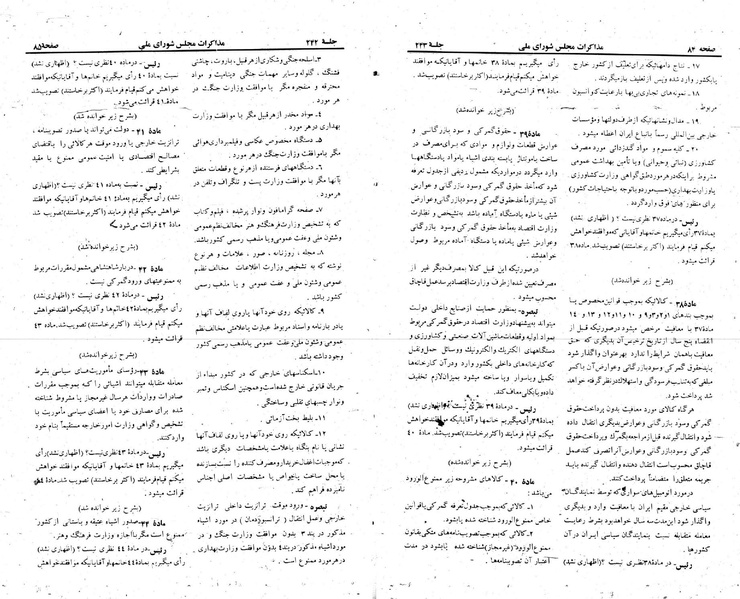 صفحه ۸۴
مذاکرات مجلس شورای ملی
جلسه ۲۴۳
۱۷- نتاج دامهائیکه برای تعلیف از کشور خارج
یابکشور وارد شده وپس از تعلیف بازمیگردند.
۱۸- نمونه‌های تجاری بی‌بها با رعایت کنوانسیون
مربوط
۱۹- مدال ونشانهائیکه ازطرف دولتها ومؤسسات
خارجی بین‌المللی رسماً باتباع ایران اعطاء میشود.
۲۰- کلیه سموم و مواد گندزدائی مورد مصرف
کشاورزی (نباتی وحیوانی) ویا تأمین بهداشت عمومی
شرط براینکه درهر موردطبق گواهی وزارت کشاورزی
یاوزارت بهداری (حسب مورد با توجه به احتیاجات کشور)
برای منظورهای فوق واردگردد.
رئیس- درماده ۳۷ نظری نیست ؟ ( اظهاری نشد)
بماده ۳۷ رأی میگیریم خانمها و آقایانی که موافقند خواهش
میکنم قیام فرمایند (اکثربرخاستند) تصویب شد. ماده ۳۸
قرائت میشود.
(بشرح زیر خوانده شد)
ماده ۳۸- کالائیکه بموجب قوانین مخصوص یا
بموجب بندهای ۱و۲و۳و۹ و ۱۰و۱۱و۱۲ و ۱۳ و ۱۴
ماده ۳۷ با معافیت مرخص میشود درصورتیکه قبل از
انقضاء پنج سال ازتاریخ ترخیص آن بدیگری که حق
معافیت باهمان شرایط را ندارد بهر عنوان واگذار شود
باید حقوق گمرکی وسود بازرگانی وعوارض آن باکسر
مبلغی که به تناسب فرسودگی واستهلاک در نظر گرفته خواهد
شد پرداخت شود.
هر گاه کالای مورد معافیت بدون پرداخت حقوق
گمرکی وسود بازرگانی وعوارض بدیگری انتقال داده
شود وانتقال گیرنده قبل از مراجعه بگمرک وپرداخت حقوق
گمرکی وسود بازرگانی وعوارض آنرا تصرف کند عمل
قاچاق محسوب است انتقال دهنده و انتقال گیرنده باید
جریمه متعلق را متضامناً پرداخت کنند.
درمورد اتومبیل‌های سواری که توسط نمایندگان
سیاسی خارجی مقیم ایران با معافیت وارد و بدیگری
واگذار شود این مدت سه سال خواهد بود بشرط رعایت
معامله متقابله نسبت بنمایندگان سیاسی ایران در آن
کشورها.
رئیس- در ماده ۳۸ نظری نیست؟ (اظهاری نشد)
رأی میگیریم بماده ۳۸ خانمها و آقایانیکه موافقند
خواهش میکنم قیام فرمایند (اکثر برخاستند) تصویب شد.
ماده ۳۹ قرائت میشود.
(بشرح زیر خوانده شد)
ماده ۳۹- حقوق گمرکی و سود بازرگانی و
عوارض قطعات ولوازم و موادی که برای مصرف در
ساخت یامونتاژ یابسته بندی اشیاء یامواد یادستگاهها
وارد میگردد درمواردیکه مشمول ردیفی از جدول تعرفه
شود که مأخذ حقوق گمرکی وسود بازرگانی و عوارض
آن بیش از مأخذ حقوق گمرکی وسود بازرگانی وعوارض
شیئی یا ماده یادستگاه آماده باشد به تشخیص و نظارت
وزارت اقتصاد بمأخذ حقوق گمرکی وسود بازرگانی
وعوارض شیئی یاماده یا دستگاه آماده مربوط وصول
خواهد شد.
درصورتیکه این قبیل کالا بمصرف دیگری غیر از
مصرف تعیین شده از طرف وزارت اقتصاد برسد عمل قاچاق
محسوب میشود.
تبصره- بمنظور حمایت از صنایع داخلی دولت
میتواند به پیشنهاد وزارت اقتصاد درحقوق گمرکی مربوط
بمواد اولیه وقطعات ماشین آلات صنعتی و کشاورزی و
دستگاههای الکتریک والکترونیک ووسائل حمل ونقل
که کارخانه‌های داخلی بکشور وارد و در آن کارخانه‌ها
تکمیل ویاسوار ویا ساخته میشود بمیزان لازم تخفیف
داده ویا بکلی معاف کند.
رئیس- در ماده ۳۹ نظری نیست؟ (اظهاری نشد)
بماده ۳۹ رأی میگیریم خانمها و آقایانیکه موافقند خواهش
میکنم قیام فرمایند (اکثر برخاستند) تصویب شد. ماده ۴۰
قرائت میشود.
(بشرح زیر خوانده شد)
ماده ۴۰- کالاهای مشروحه زیر ممنوع الورود
می‌باشد :
۱- کالائی که بموجب جدول تعرفه گمرکی یا قوانین
خاص ممنوع الورود شناخته شده یا بشود.
۲- کالائی که بموجب تصویب‌نامه‌های متکی بقانون
ممنوع الورود (غیر مجاز) شناخته شده یا بشود در مدت
اعتبار آن تصویبنامه‌ها.
جلسه ۲۴۲
مذاکرات مجلس شورای ملی
صفحه ۸۵
۳- اسلحه جنگی وشکاری از هر قبیل، باروت، چاشنی
فشنگ، گلوله وسایر مهمات جنگی دینامیت و مواد
محترقه و منفجره مگر با موافقت وزارت جنگ در
هر مورد.
۴- مواد مخدر از هر قبیل مگر با موافقت وزارت
بهداری در هر مورد.
۵- دستگاه مخصوص عکاسی وفیلمبرداری هوائی
مگر با موافقت وزارت جنگ در هر مورد.
۶- دستگاههای فرستنده از هر نوع و قطعات متعلق
بآنها مگر با موافقت وزارت پست و تلگراف و تلفن در
هر مورد.
۷- صفحه گرامافون ونوار پر شده ، فیلم وکتاب
که به تشخیص وزارت فرهنگ و هنر مخالف نظم عمومی
وشئون ملی وعفت عمومی و یا مذهب رسمی کشور باشد.
۸- مجله ، روزنامه ، صور ، علامات و هر نوع
نوشته که به تشخیص وزارت اطلاعات مخالف نظم
عمومی وشئون ملی و عفت عمومی و یا مذهب رسمی
کشور باشد.
۹- کالائیکه روی خود آنها یا روی لفاف آنها و
یا در بارنامه واسناد مربوط عبارت یا علامتی مخالف نظم
عمومی و شئون ملی و عفت عمومی یا مذهب رسمی کشور
وجود داشته باشد.
۱۰- اسکناسهای خارجی که در کشور مبداء از
جریان قانونی خارج شده است و همچنین اسکناس و تمبر
ونوار چسبهای تقلبی وساختگی.
۱۱- بلیط بخت آزمائی.
۱۲- کالائیکه روی خود آنها و یا روی لفاف آنها
نشانی یا نام بنگاه یا علامت یا مشخصات دیگری باشد
که موجبات اغفال خریدار و مصرف کننده را نسبت بسازنده
یا محل ساخت یا خواص یا مشخصات اصلی جنس
فراهم کند.
تبصره- ورود موقت ترانزیت داخلی ترانزیت
خارجی وصل انتقال ( ترانسبوردمان) در مورد اشیاء
مذکور در بند ۳ بدون موافقت وزارت جنگ و در
مورد اشیاء مذکور در بند ۴ بدون موافقت وزارت بهداری
در هر مورد ممنوع است .
رئیس- در ماده ۴۰ نظری نیست ؟ ( اظهاری نشد)
نسبت بماده ۴۰ رأی میگیریم خانم‌ها و آقایانیکه موافقند
خواهش میکنم قیام فرمایند (اکثر برخاستند) تصویب شد.
ماده ۴۱ قرائت می‌شود.
(بشرح زیر خوانده شد)
ماده ۴۱- دولت می‌تواند با صدور تصویبنامه ،
ترانزیت خارجی یا ورود موقت هر کالائی را باقتضای
مصالح اقتصادی یا امنیت عمومی ممنوع یا مقید
بشرایطی کند.
رئیس- نسبت بماده ۴۱ نظری نیست؟ (اظهاری
نشد) رأی میگیریم بماده ۴۱ خانمها و آقایانیکه موافقند
خواهش میکنم قیام فرمایند (اکثر برخاستند) تصویب شد
ماده ۴۲ قرائت می‌شود.
(بشرح زیر خوانده شد)
ماده ۴۲- دربار شاهنشاهی مشمول مقررات مربوط
به ممنوعیتهای ورود گمرکی نیست.
رئیس- در ماده ۴۲ نظری نیست ؟ (اظهاری نشد)
رأی میگیریم بماده ۴۲ خانمها و آقایانیکه موافقند خواهش
میکنم قیام فرمایند (اکثر برخاستند) تصویب شد. ماده ۴۳
قرائت میشود.
(بشرح زیر خوانده شد)
ماده ۴۳- رؤسای مأموریت‌های سیاسی بشرط
معامله متقابله میتوانند اشیائی را که بموجب مقررات
صادرات و واردات هر سال غیر مجاز یا مشروط شناخته
شده برای مصارف خود یا اعضای سیاسی مأموریت با
تشخیص و گواهی وزارت امور خارجه مستقیماً بنام خود
وارد کنند.
رئیس- در ماده ۴۳ نظری نیست ؟ (اظهاری نشد) رأی
میگیریم بماده ۴۳ خانمها و آقایانیکه موافقند خواهش
میکنم قیام فرمایند (اکثر برخاستند) تصویب شد. ماده ۴۴
قرائت میشود.
(بشرح زیر خوانده شد)
ماده ۴۴- صدور اشیاء عتیقه و باستانی از کشور
ممنوع است مگر با اجازه وزارت فرهنگ وهنر.
رئیس- در ماده ۴۴ نظری نیست ؟ (اظهاری نشد)
رأی میگیریم بماده ۴۴ خانمها و آقایانیکه موافقند خواهش